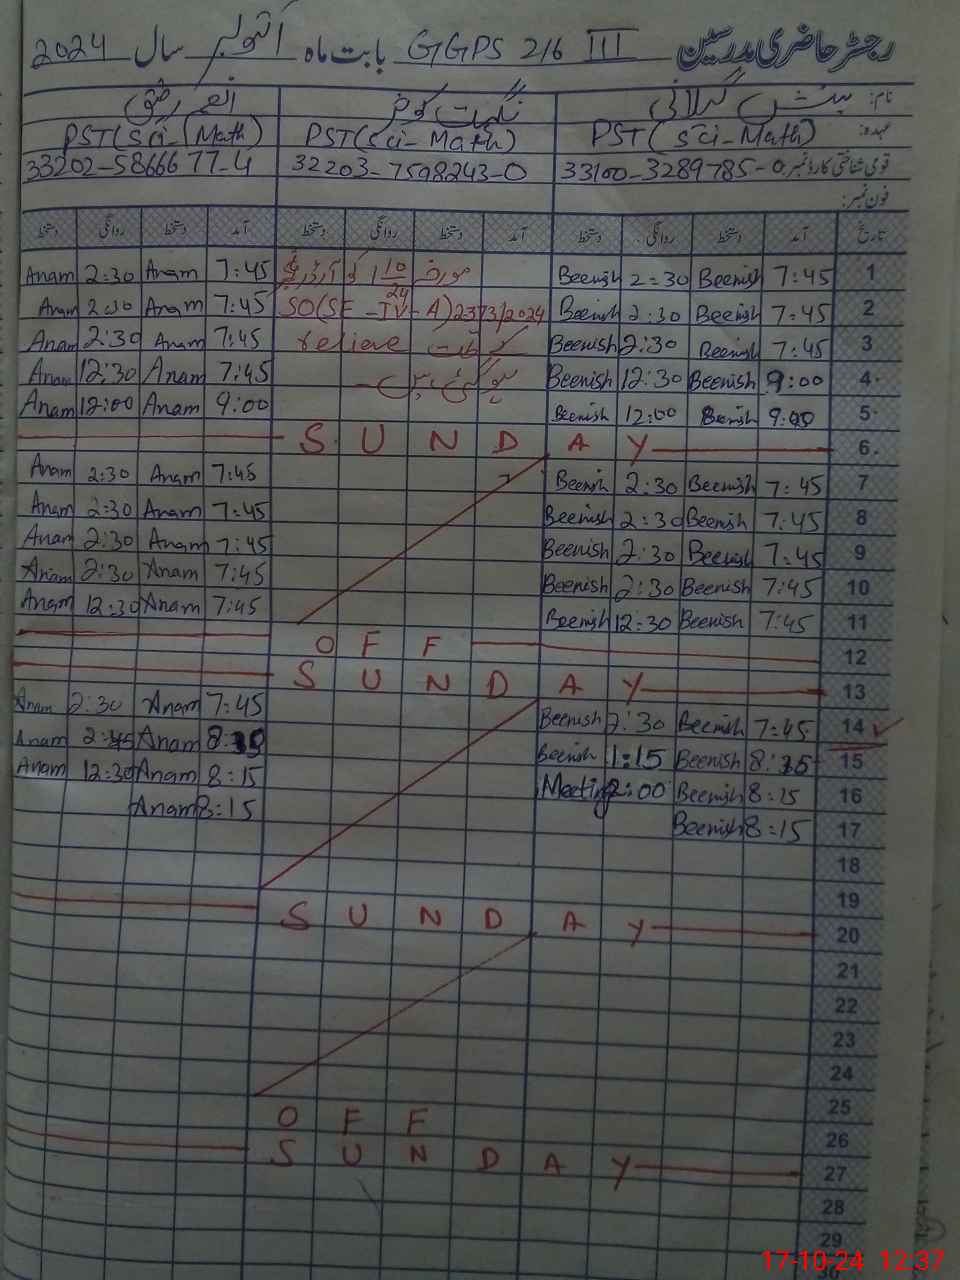 رجسٹر حاضری مدرسین GGPS 216 III بابت ماہ اکتوبر سال 2024
نام: بینش گیلانی نگہت کوثر انعم رفیق
عہدہ: PST (Sci-Math) PST (Sci-Math) PST (Sci-Math)
قومی شناختی کارڈ نمبر: 33100-3289785-0 32203-7598243-0 33202-5866677-4
فون نمبر:
تاریخ آمد دستخط روانگی دستخط آمد دستخط روانگی دستخط آمد دستخط روانگی دستخط
1 7:45 Beenish 2:30 Beenish مورخہ 1 10/24 کو آرڈر 7:45 Anam 2:30 Anam
2 7:45 Beenish 2:30 Beenish SO(SE-IV-A)2373/2024 7:45 Anam 2:30 Anam
3 7:45 Beenish 2:30 Beenish کے تحت relieve 7:45 Anam 2:30 Anam
4 9:00 Beenish 12:30 Beenish ہو گئی ہیں 7:45 Anam 12:30 Anam
5 9:00 Beenish 12:00 Beenish 9:00 Anam 12:00 Anam
6 SUNDAY
7 7:45 Beenish 2:30 Beenish 7:45 Anam 2:30 Anam
8 7:45 Beenish 2:30 Beenish 7:45 Anam 2:30 Anam
9 7:45 Beenish 2:30 Beenish 7:45 Anam 2:30 Anam
10 7:45 Beenish 2:30 Beenish 7:45 Anam 2:30 Anam
11 7:45 Beenish 12:30 Beenish 7:45 Anam 12:30 Anam
12 OFF
13 SUNDAY
14 7:45 Beenish 2:30 Beenish 7:45 Anam 2:30 Anam
15 Beenish 1:15 Beenish Anam 2:45 Anam
16 8:15 Beenish 2:00 Meeting 8:15 Anam 12:30 Anam
17 8:15 Beenish 8:15 Anam
18
19
20 SUNDAY
21
22
23
24
25
26 OFF
27 SUNDAY
28
29
17-10-24 12:37